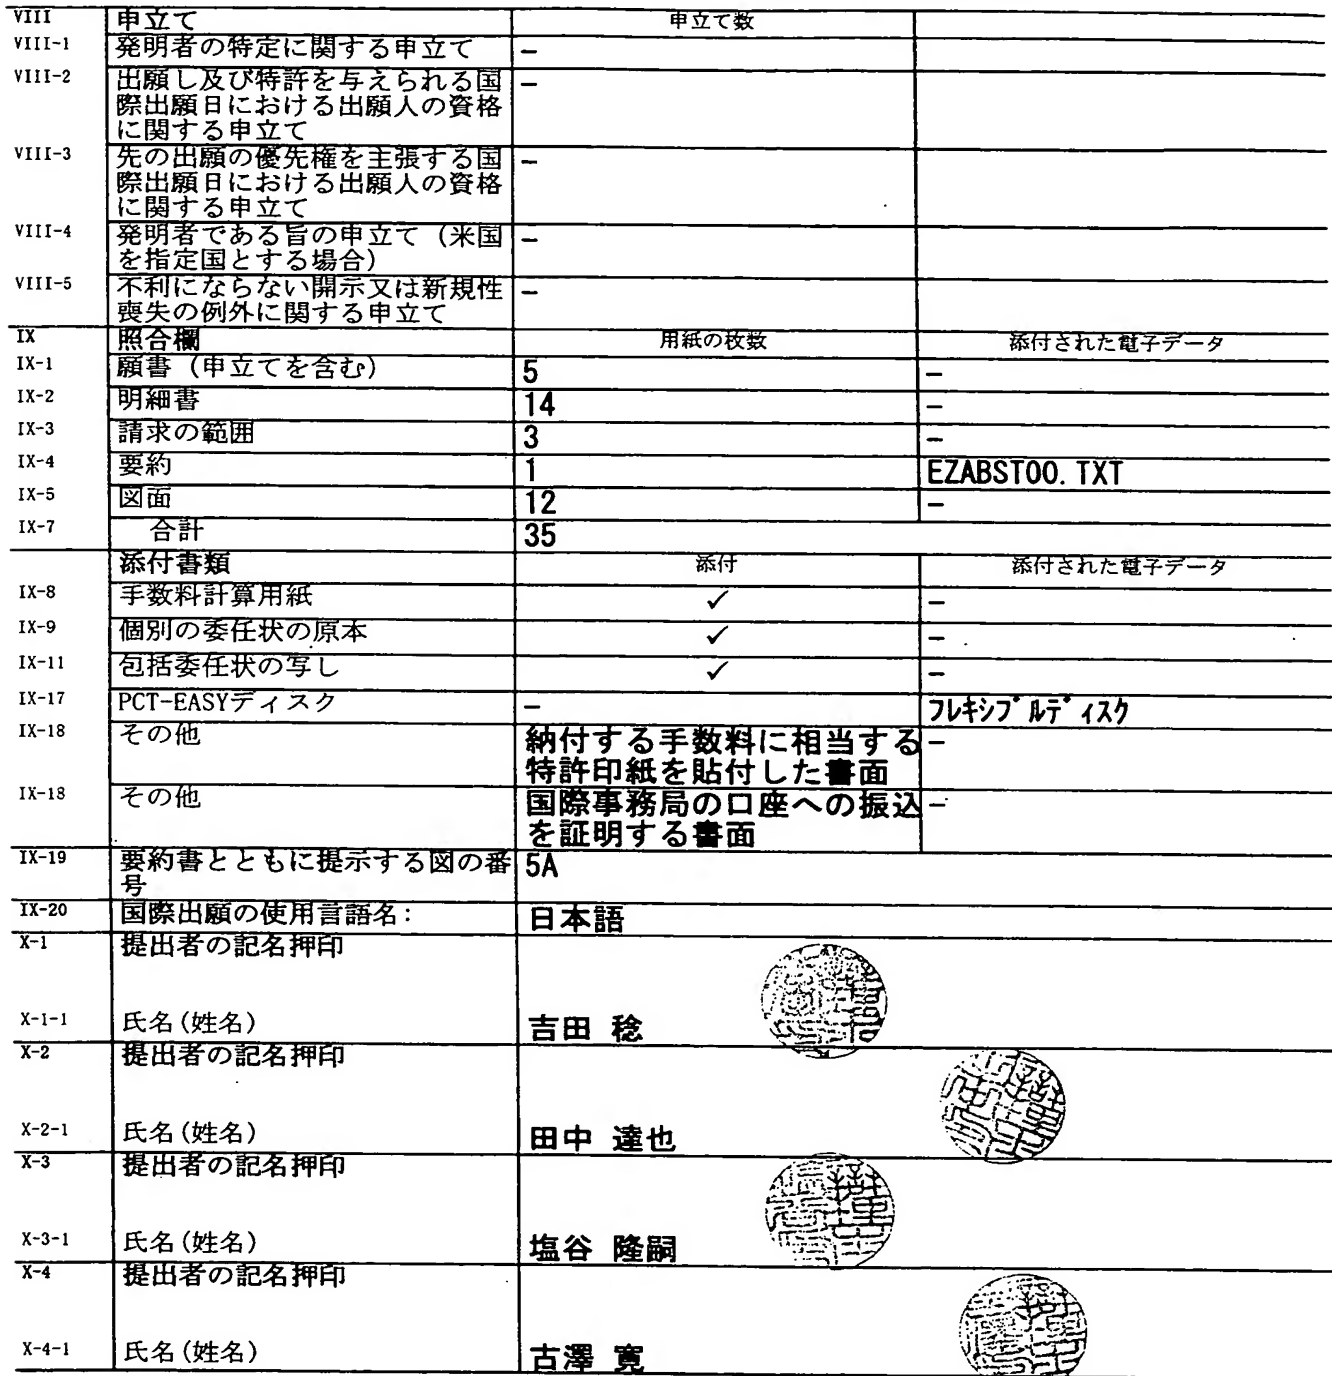 VIII 申立て 申立て数
VIII-1 発明者の特定に関する申立て -
VIII-2 出願し及び特許を与えられる国 -
際出願日における出願人の資格
に関する申立て
VIII-3 先の出願の優先権を主張する国 -
際出願日における出願人の資格
に関する申立て
VIII-4 発明者である旨の申立て（米国 -
を指定国とする場合）
VIII-5 不利にならない開示又は新規性 -
喪失の例外に関する申立て
IX 照合欄 用紙の枚数 添付された電子データ
IX-1 願書（申立てを含む） 5 -
IX-2 明細書 14 -
IX-3 請求の範囲 3 -
IX-4 要約 1 EZABST00.TXT
IX-5 図面 12 -
IX-7 合計 35
添付書類 添付 添付された電子データ
IX-8 手数料計算用紙 ✓ -
IX-9 個別の委任状の原本 ✓ -
IX-11 包括委任状の写し ✓ -
IX-17 PCT-EASYディスク - フレキシブルディスク
IX-18 その他 納付する手数料に相当する -
特許印紙を貼付した書面
IX-18 その他 国際事務局の口座への振込 -
を証明する書面
IX-19 要約書とともに提示する図の番 5A
号
IX-20 国際出願の使用言語名: 日本語
X-1 提出者の記名押印
X-1-1 氏名(姓名) 吉田 稔
X-2 提出者の記名押印
X-2-1 氏名(姓名) 田中 達也
X-3 提出者の記名押印
X-3-1 氏名(姓名) 塩谷 隆嗣
X-4 提出者の記名押印
X-4-1 氏名(姓名) 古澤 寛